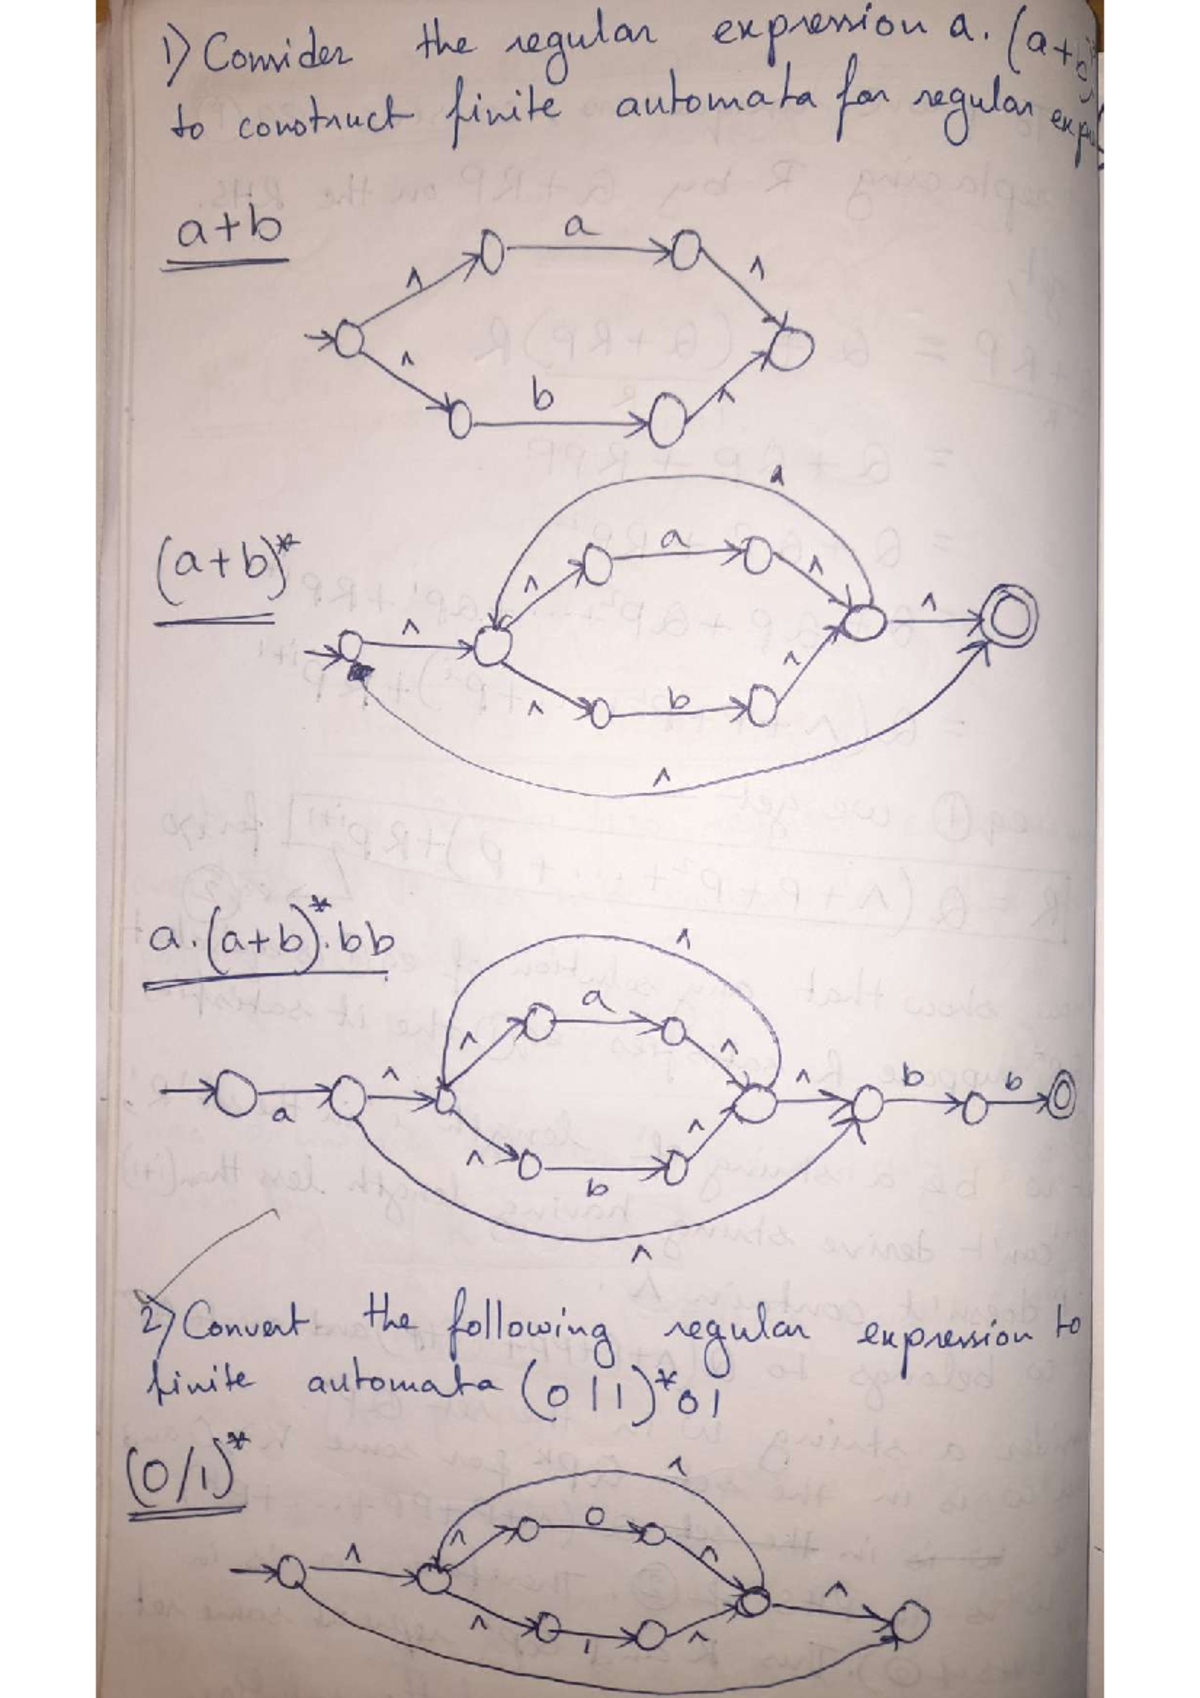 1) Consider the regular expression a. (a+b
to construct finite automata for regular exp
a+b
a
^
^
^
b
^
(a+b)*
^
a
^
^
^
^
^
b
^
^
a.(a+b)*.bb
^
a
^
^
^
^
b
b
a
^
^
b
^
2) Convert the following regular expression to
finite automata (0|1)*01
(0/1)*
^
0
^
^
^
^
^
1
^